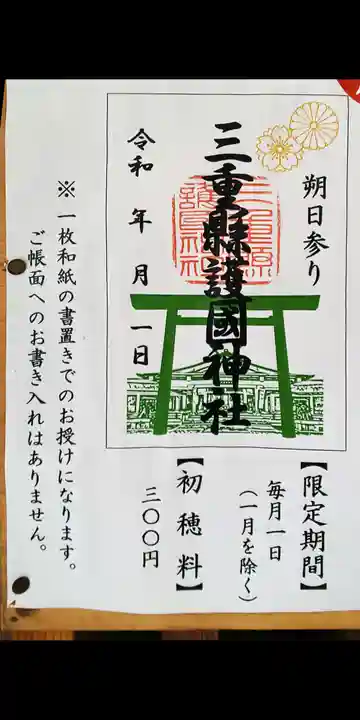 朔日参り
三重縣護國神社
令和 年 月 一日
【限定期間】
毎月一日
(一月を除く)
【初穂料】
三〇〇円
※一枚和紙の書置きでのお授けになります。
ご帳面へのお書き入れはありません。